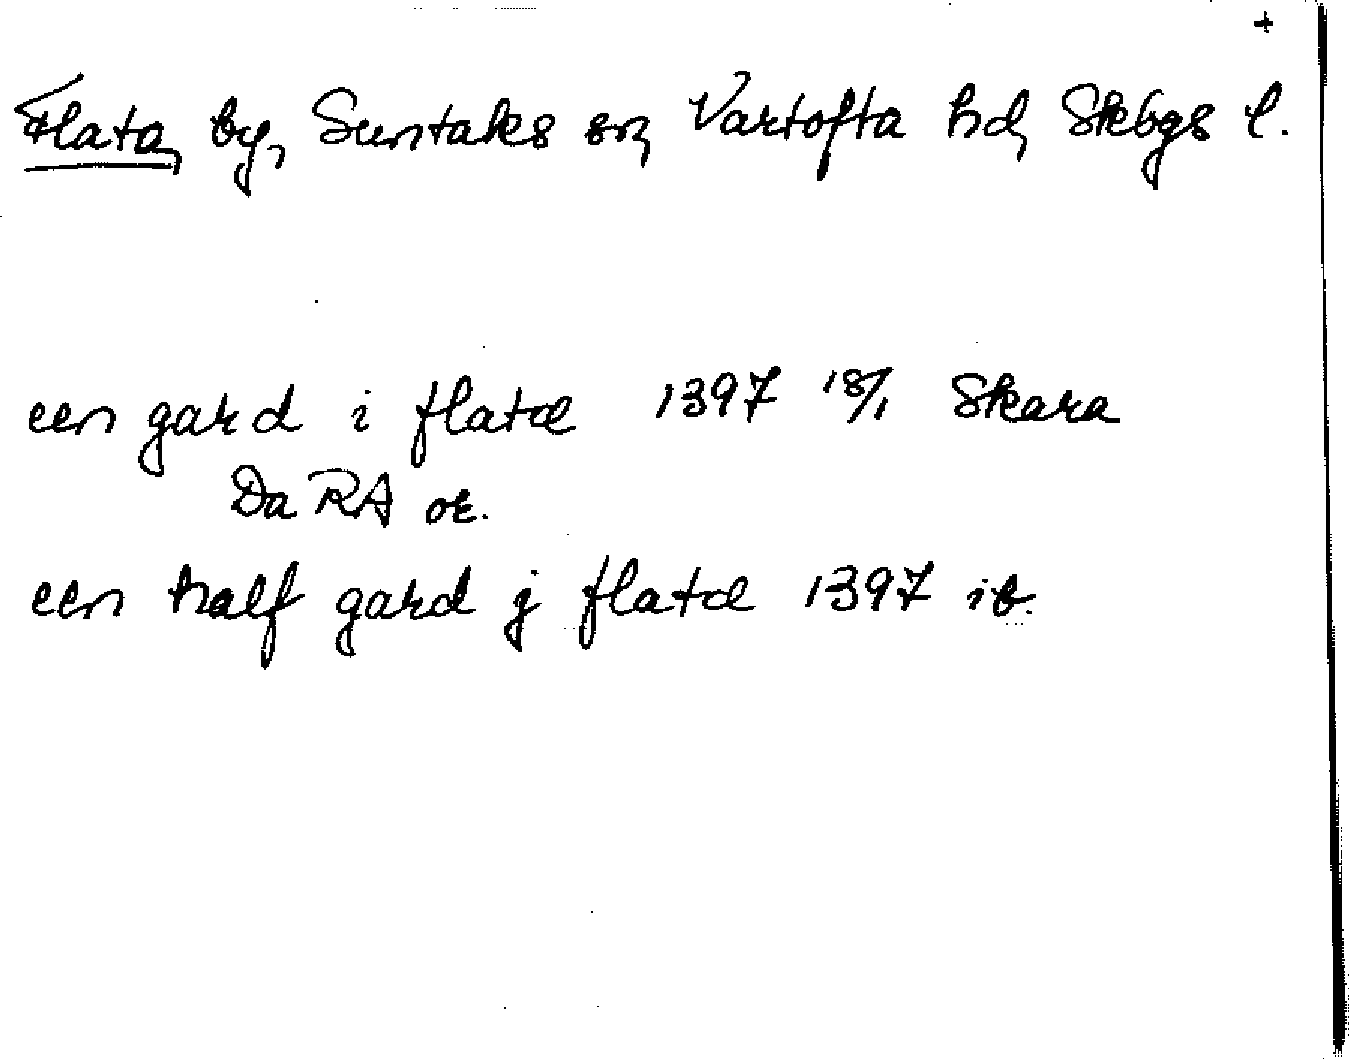 +
Flata, by, Suntaks sn, Vartofta hd, Skbgs l.
een gard i flatæ 1397 18/1 Skara
Da RA or.
een half gard j flatæ 1397 ib.